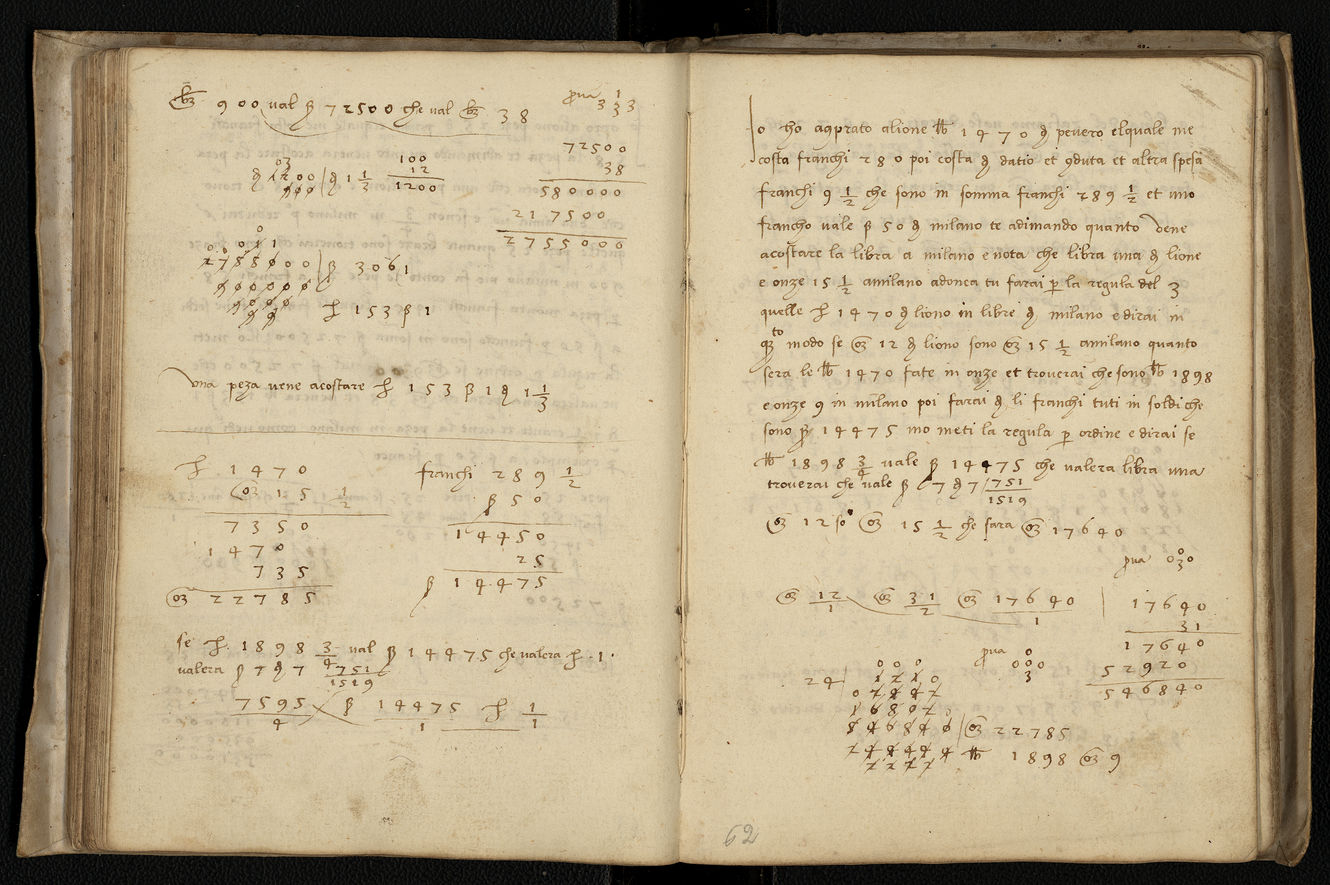 900 val β 72500 che val 38
prova 3 1/3 3
72500
38
580000
217500
2755000
03
1200 | 1 1/3
900
100
12
1200
0
0 1 1
2755000 | β 3061
900000
9000
99
153 β 1
Una peza vene acostare 153 β 1 1 1/3
1470
15 1/2
7350
1470
735
22785
franchi 289 1/2
β 50
14450
25
β 14475
se 1898 3/4 val β 14475 che valera 1
valera β 7 7 751/1519
7595/4 β 14475/1 1/1
Io ho aqprato alione 1470 pevero elquale me
costa franchi 280 poi costa datio et 9duta et altra spesa
franchi 9 1/2 che sono in somma franchi 289 1/2 et uno
francho vale β 50 milano te adimando quanto vene
acostare la libra a milano e nota che libra una lione
e onze 15 1/2 amilano adonca tu farai p la regula del 3
quelle 1470 liono in libre milano e dirai in
qsto modo se 12 liono sono 15 1/2 amilano quanto
sera le 1470 fate in onze et troverai che sono 1898
e onze 9 in milano poi farai li franchi tuti in soldi che
sono β 14475 mo meti la regula p ordine e dirai se
1898 3/4 vale β 14475 che valera libra una
troverai che vale β 7 7 751/1519
12 so 15 1/2 che sara 17640
prova 0 0/3 0
12/1 31/2 17640/1
17640
31
17640
52920
546840
prova 0
000
3
24
000
1210
546840 | 22785
1898 9
62